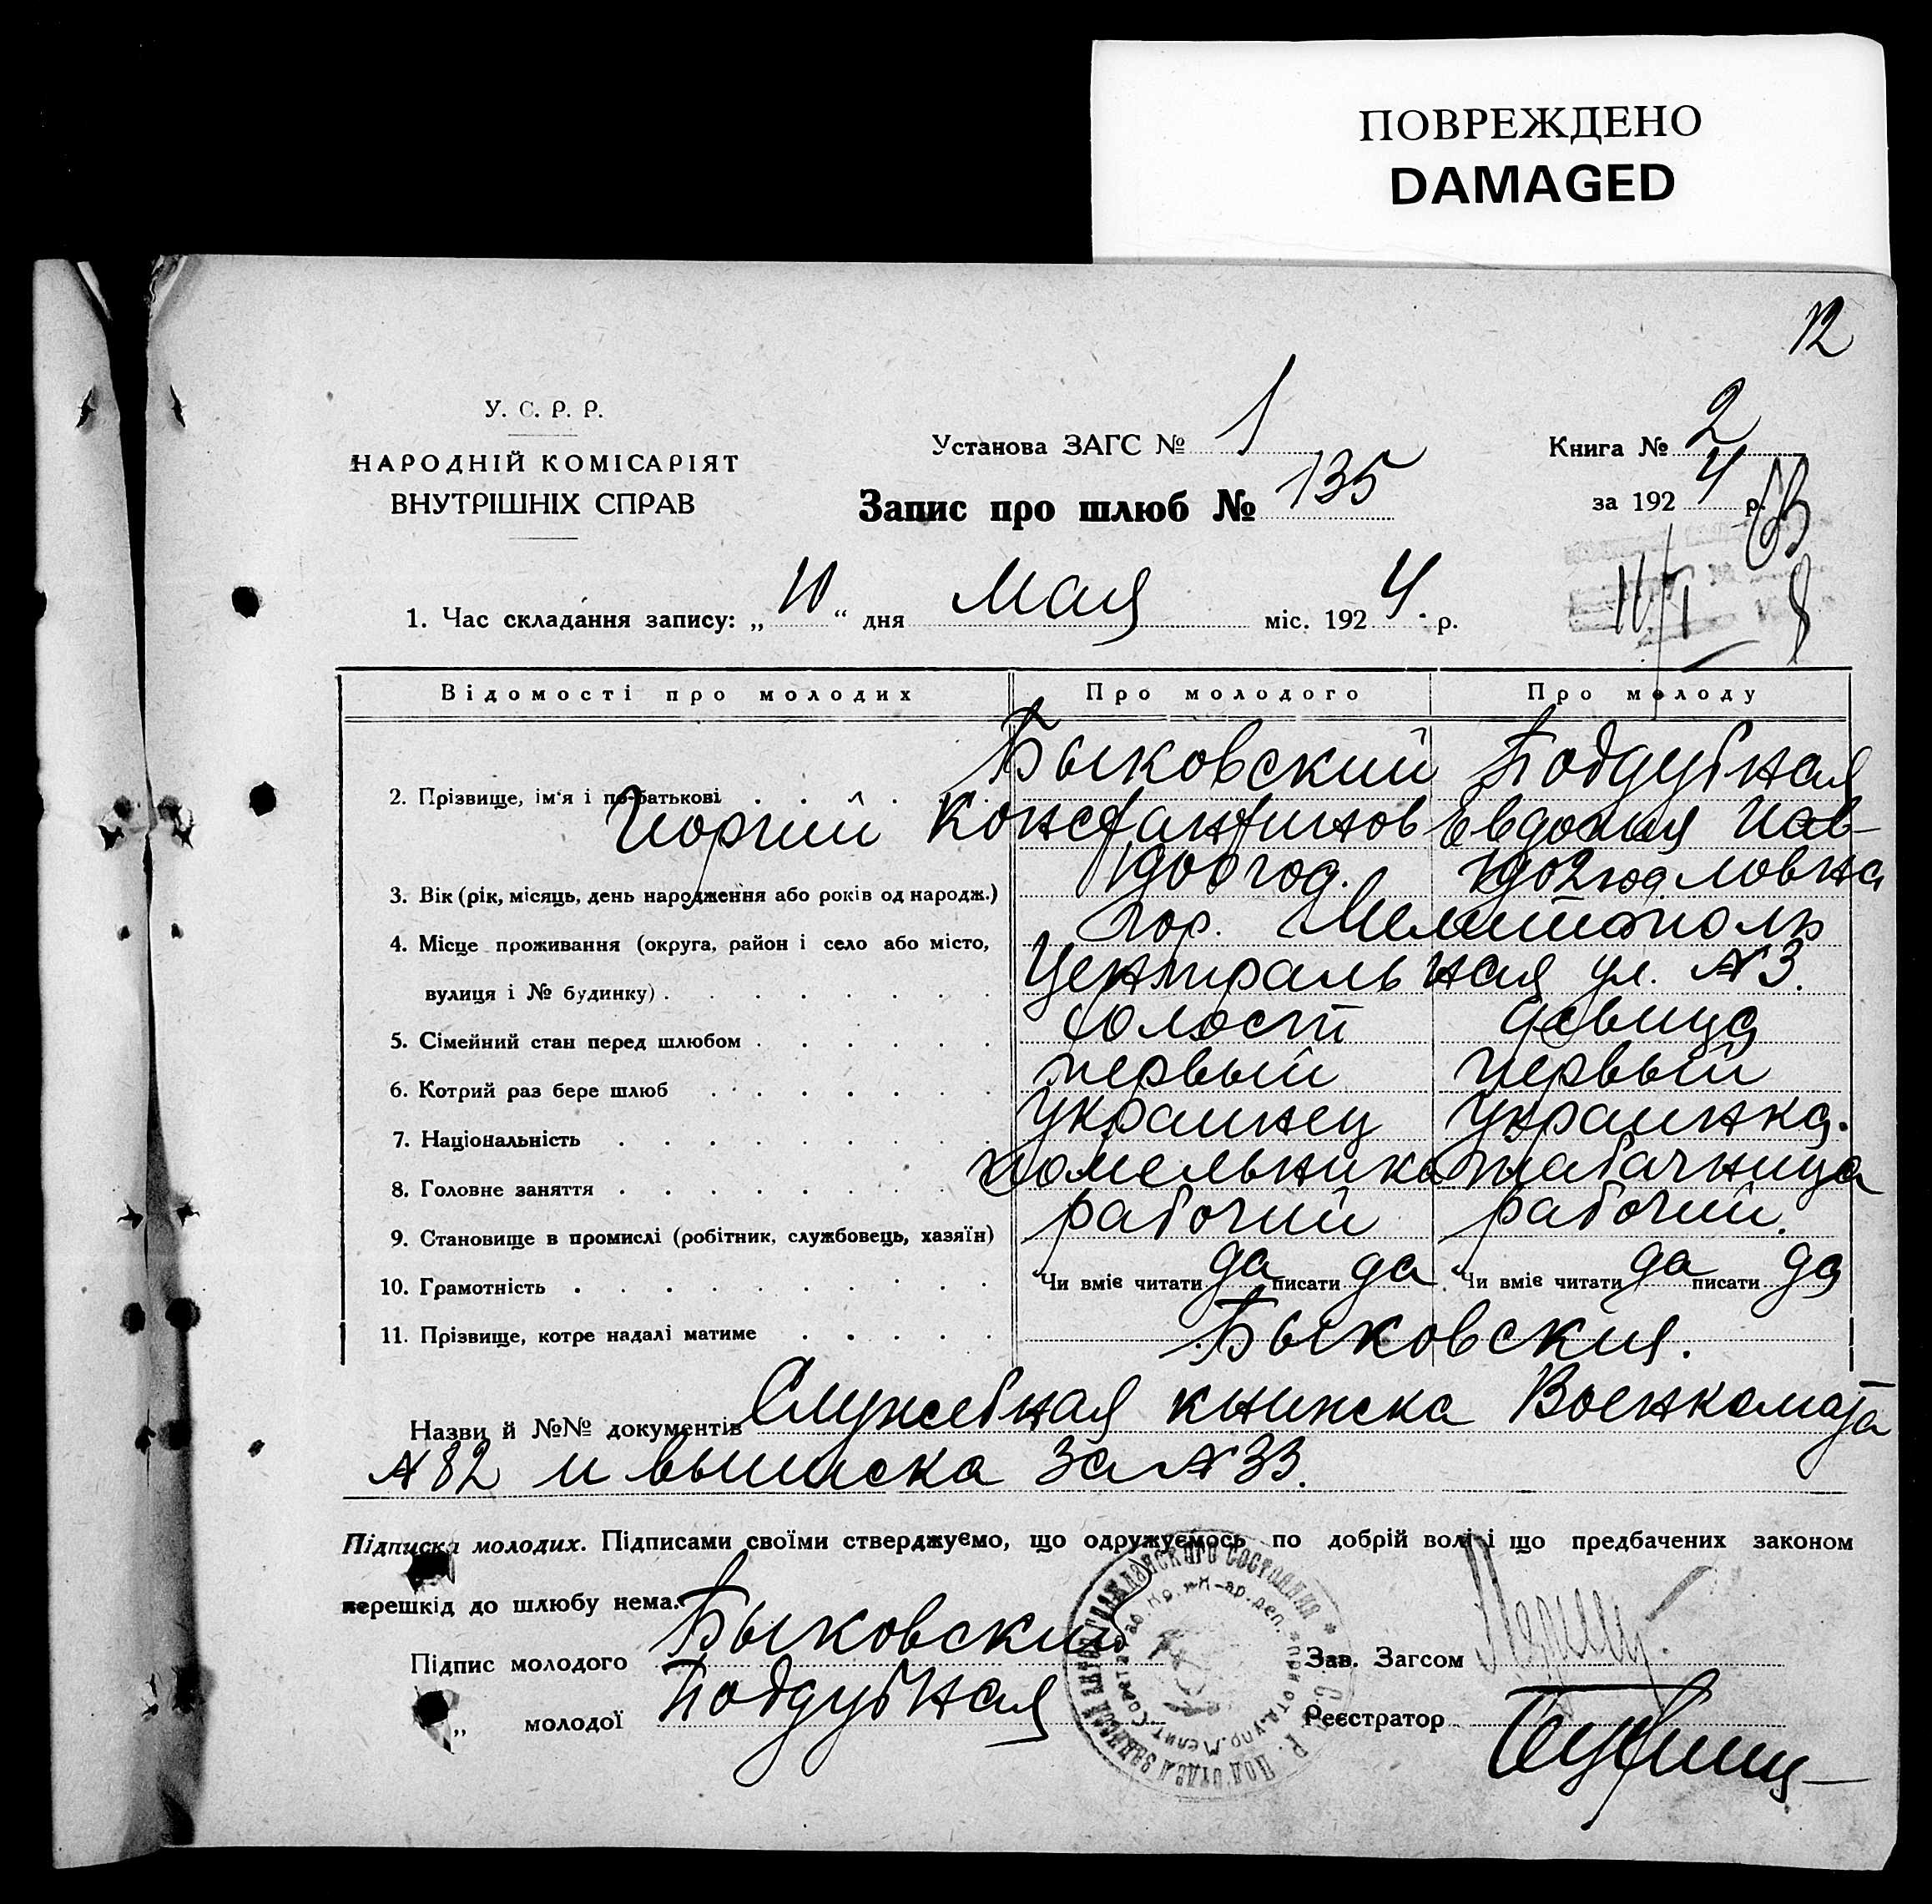 ПОВРЕЖДЕНО
DAMAGED
12
У. С. Р. Р.
НАРОДНІЙ КОМІСАРІЯТ
ВНУТРІШНІХ СПРАВ
Установа ЗАГС № 1
Книга № 2
Запис про шлюб № 135
за 1924 р.
1. Час складання запису: „10“ дня Мая міс. 1924 р.
Відомості про молодих Про молодого Про молоду
2. Прізвище, ім'я і по-батькові Быковский Поддубная
Константинов Евдокия Пав-
ловна
3. Вік (рік, місяць, день народження або років од народж.) 1900 год. 1902 год
4. Місце проживання (округа, район і село або місто, гор. Мелитополь
вулиця і № будинку) Центральная ул. № 3.
5. Сімейний стан перед шлюбом холост девица
6. Котрий раз бере шлюб первый первый
7. Національність украинец украинка.
8. Головне заняття табачница
9. Становище в промислі (робітник, службовець, хазяїн) рабочий рабочий.
10. Грамотність Чи вміє читати да писати да Чи вміє читати да писати да
11. Прізвище, котре надалі матиме Быковския.
Назви й №№ документів Служебная книжка Военкомата
№ 82 и выписка за № 33.
Підписка молодих. Підписами своїми стверджуємо, що одружуємось по добрій волі і що предбачених законом
перешкід до шлюбу нема.
Підпис молодого Быковский
Зав. Загсом
„ молодої Подубная
Реєстратор